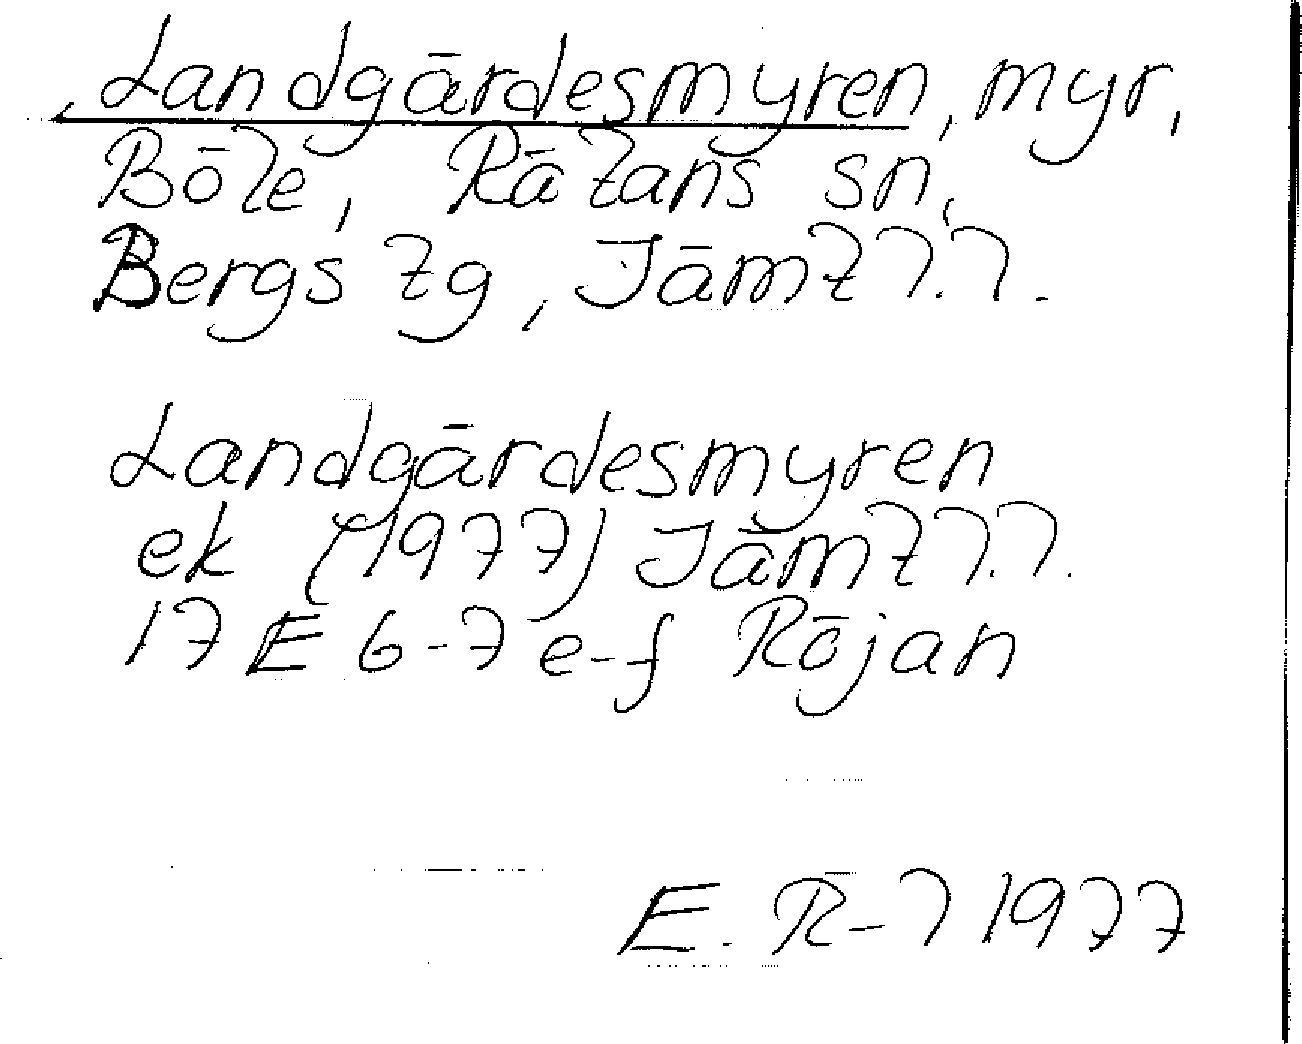 Landgärdesmyren, myr,
Böle, Rätans sn,
Bergs tg, Jämtl.l.
Landgärdesmyren
ek (1977) Jämtl.l.
17 E 6-7 e-f Röjan
E. R-l 1977